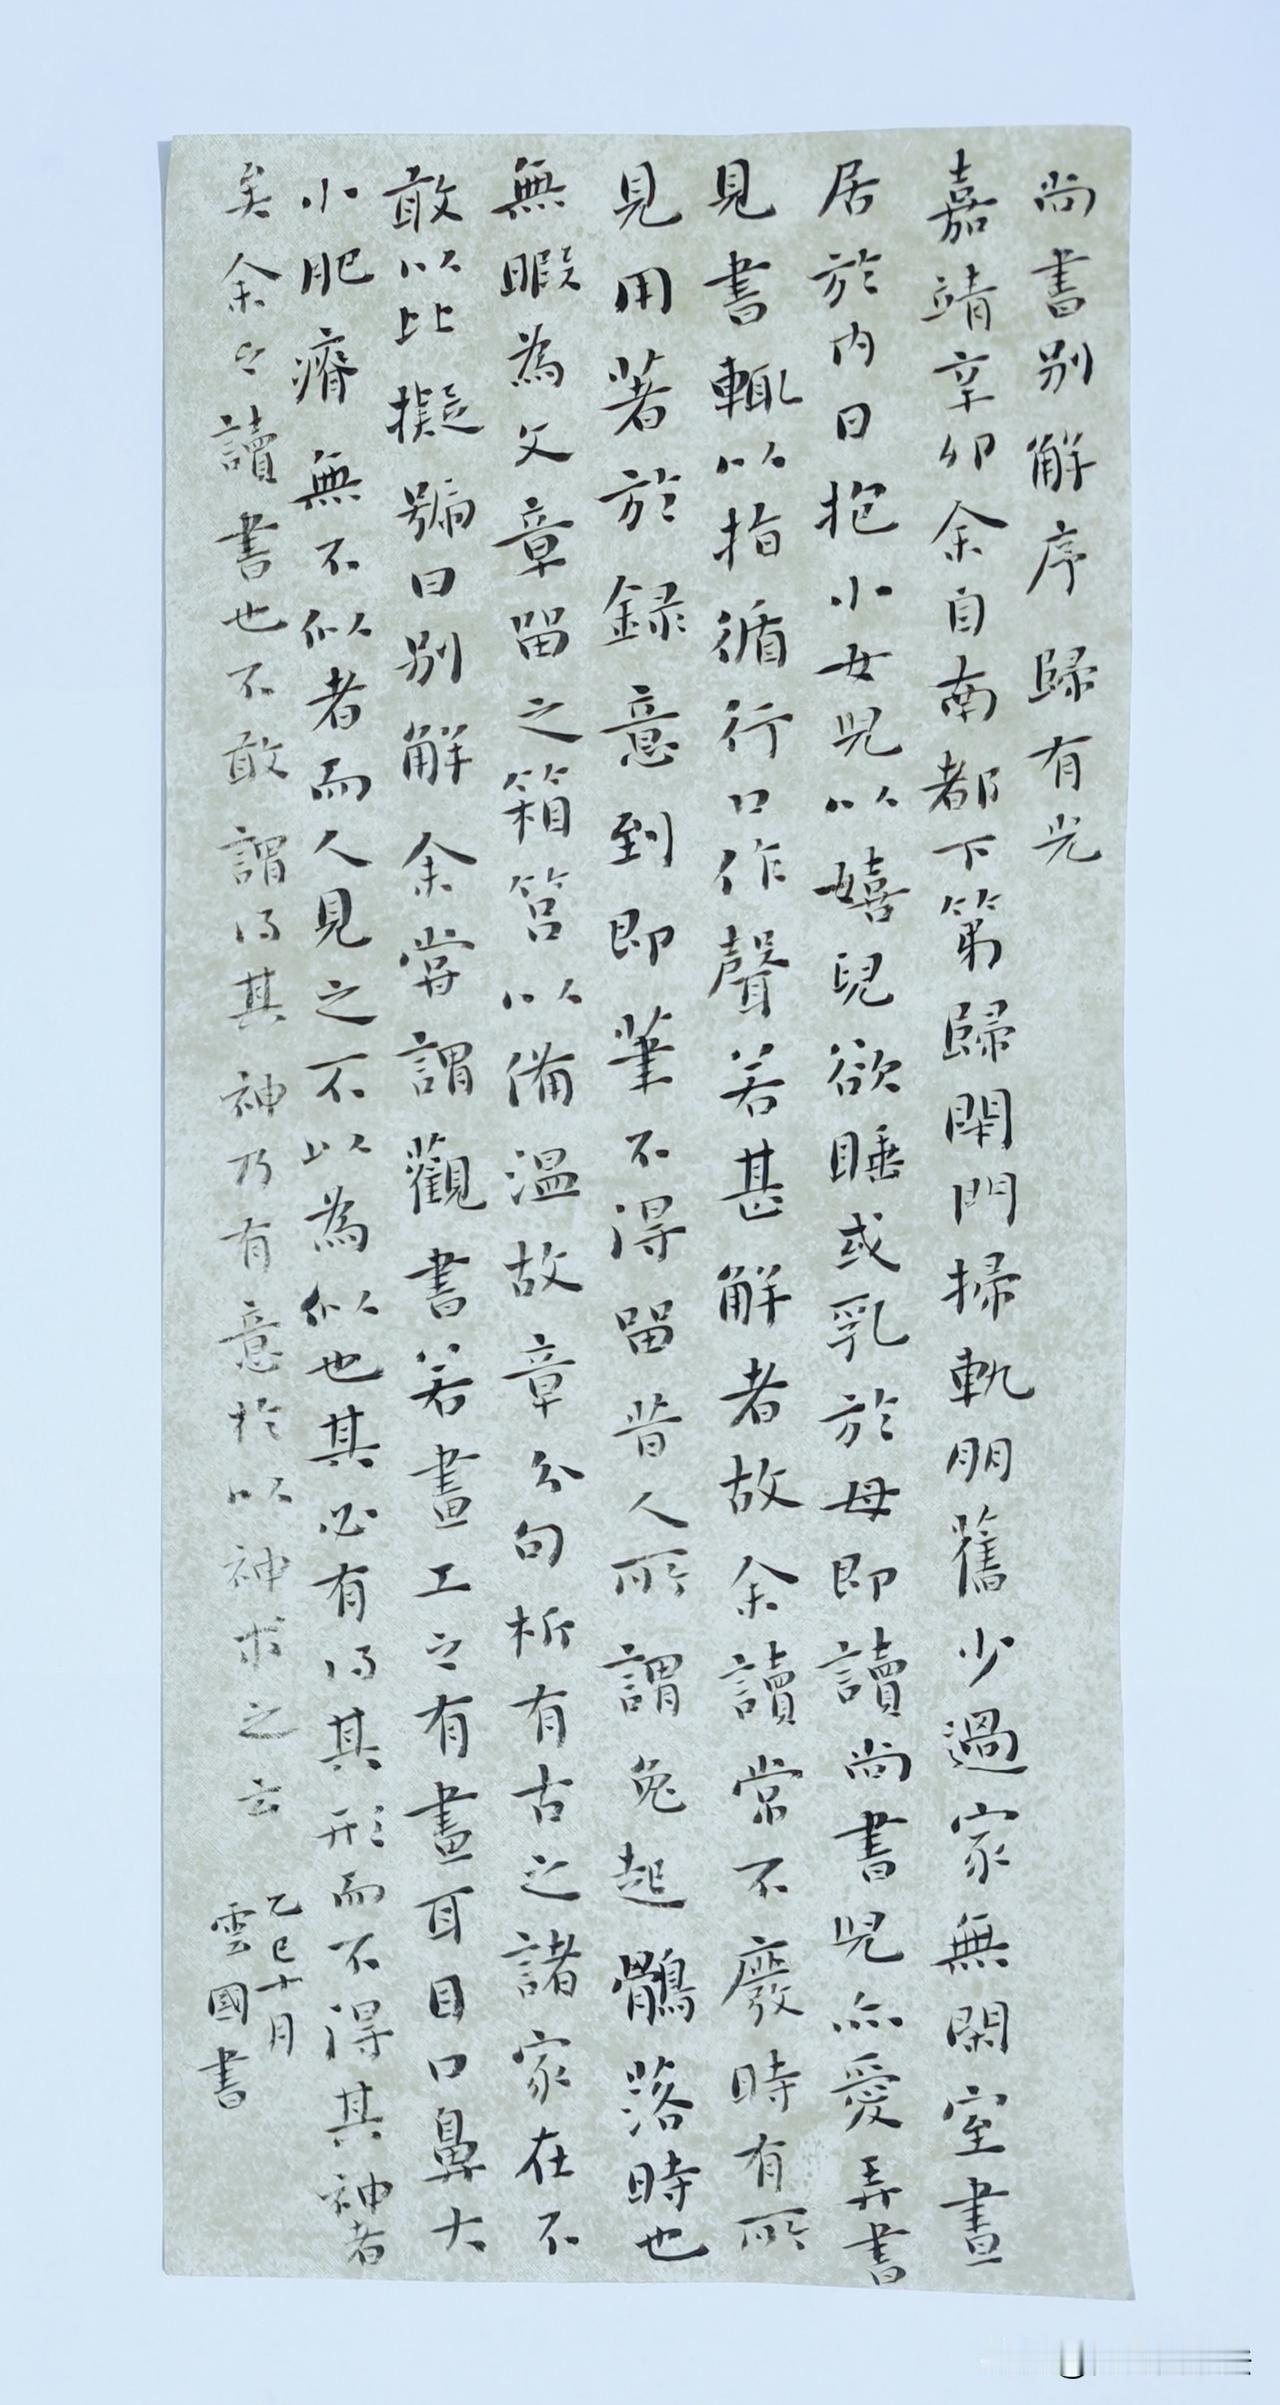 尚書別解序 歸有光
嘉靖辛卯余自南都下第歸閉門掃軌朋舊少過家無閑室晝
居於內日抱小女兒以嬉兒欲睡或乳於母即讀尚書兒亦愛弄書
見書輒以指循行口作聲若甚解者故余讀常不廢時有所
見用著於錄意到即筆不得留昔人所謂兔起鶻落時也
無暇為文章留之箱筥以備溫故章分句析有古之諸家在不
敢以比擬號曰別解余嘗謂觀書若畫工之有畫耳目口鼻大
小肥瘠無不似者而人見之不以為似也其必有得其形而不得其神者
矣余之讀書也不敢謂得其神乃有意於以神求之云
乙巳十月
雲國書